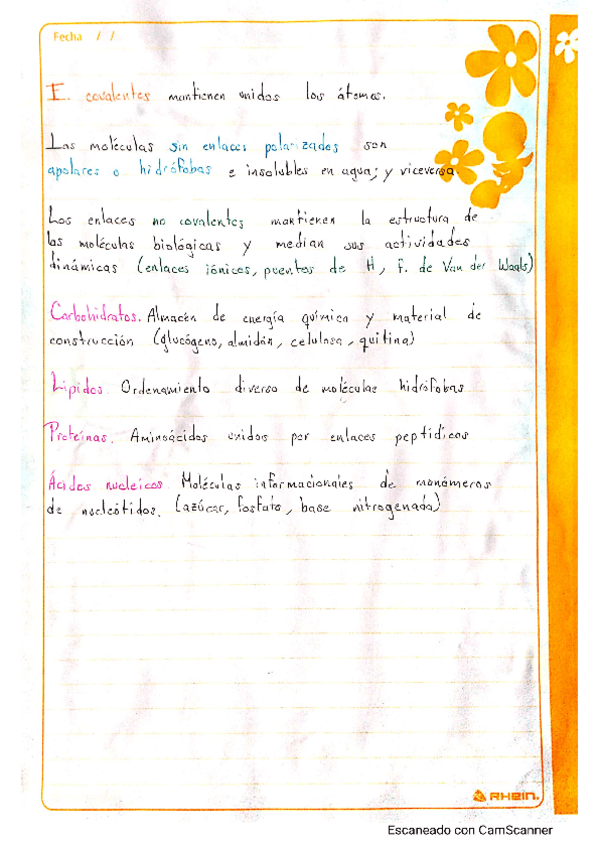 Fecha / /
E. covalentes mantienen unidos los átomos.
Las moléculas sin enlaces polarizados son
apolares o hidrófobas e insolubles en agua; y viceversa.
Los enlaces no covalentes mantienen la estructura de
las moléculas biológicas y median sus actividades
dinámicas (enlaces iónicos, puentes de H, F. de Van der Waals)
Carbohidratos. Almacén de energía química y material de
construcción (glucógeno, almidón, celulosa, quitina)
Lípidos. Ordenamiento diverso de moléculas hidrófobas
Proteínas. Aminoácidos unidos por enlaces peptídicos
Ácidos nucleicos. Moléculas informacionales de monómeros
de nucleótidos. (azúcar, fosfato, base nitrogenada)
RHein.
Escaneado con CamScanner